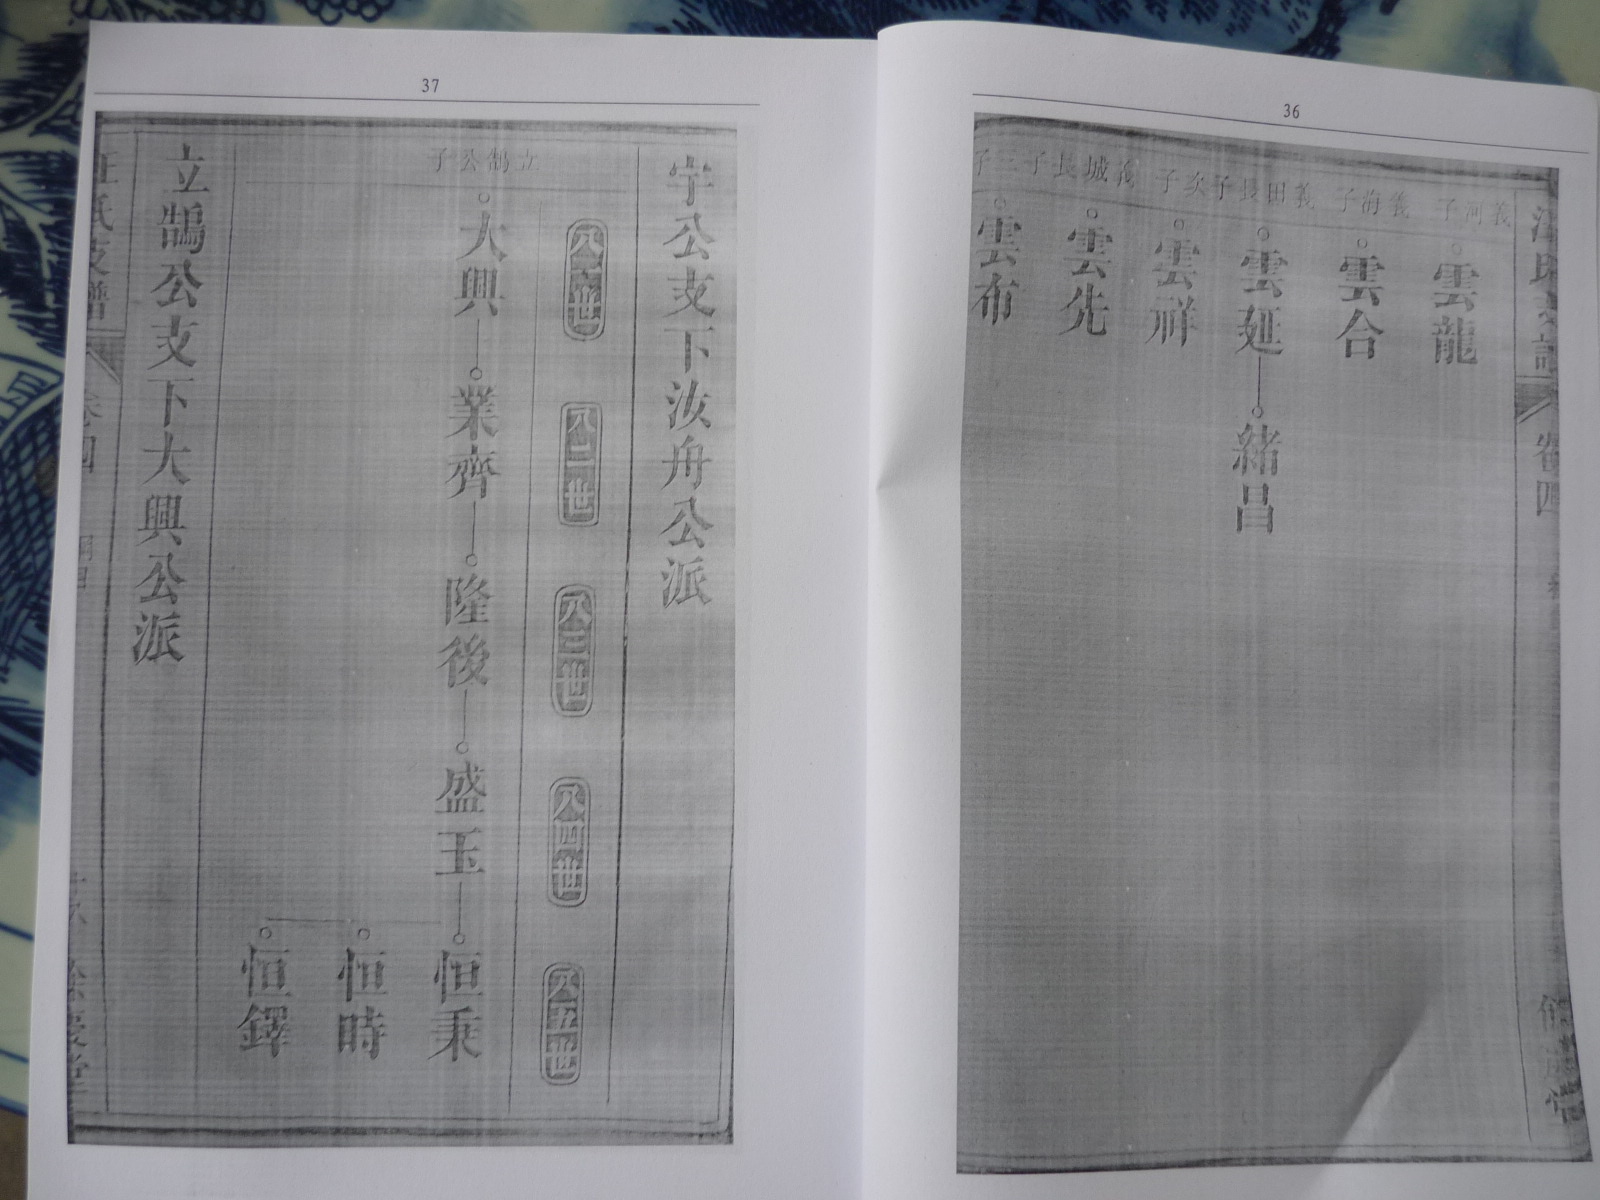 36
義河子
雲龍
義海子
雲合
義田長子
雲延
緒昌
次子
雲祥
義城長子
雲先
三子
雲布
卷四
37
宇公支下汝舟公派
八二世
八三世
八四世
八五世
立鵠公子
大興
業齊
隆後
盛玉
恒秉
恒時
恒鐸
立鵠公支下大興公派
氏支譜
卷四